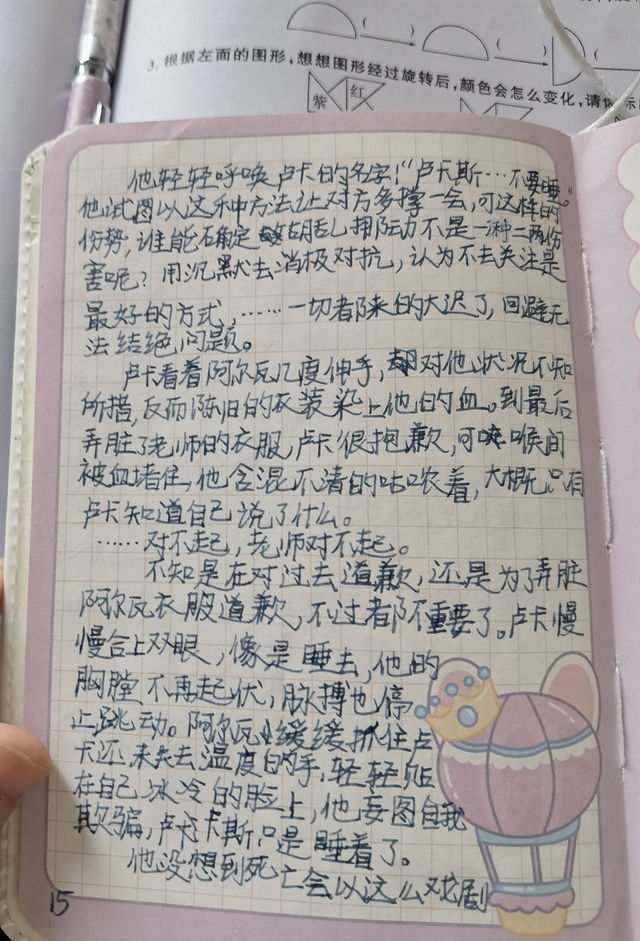 3. 根据左面的图形，想想图形经过旋转后，颜色会怎么变化，请你标
紫 红
他轻轻呼唤卢卡的名字！“卢卡斯…不要睡。”
他试图以这种方法让对方多撑一会，可这样的
伤势，谁能确定胡乱挪动不是一种二两份
害呢？用沉默去消极对抗，认为不去关注是
最好的方式，……一切都来的太迟了，回避无
法结绝问题。
卢卡看着阿尔瓦几度伸手，却对他状况不知
所措，反而陈旧的衣装染上他的血。到最后
弄脏了老师的衣服，卢卡很抱歉，可喉间
被血堵住，他含混不清的咕哝着，大概只有
卢卡知道自己说了什么。
……对不起，老师对不起。
不知是在对过去道歉，还是为了弄脏
阿尔瓦衣服道歉，不过都不重要了。卢卡慢
慢合上双眼，像是睡去，他的
胸膛不再起伏，脉搏也停
止跳动。阿尔瓦缓缓抓住卢
卡还未失去温度的手，轻轻贴
在自己冰冷的脸上，他妄图自我
欺骗，卢卡卡斯只是睡着了。
他没想到死亡会以这么戏剧
15